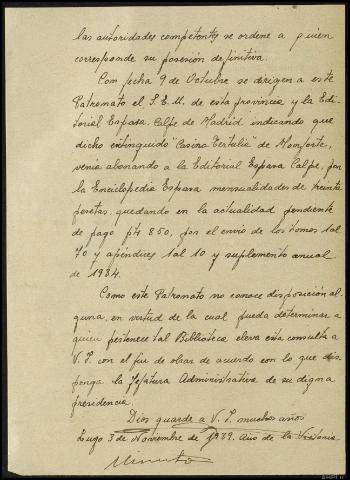 las autoridades competentes se ordene a quien
corresponde su posesión definitiva.
Con fecha 9 de Octubre se dirigen a este
Patronato el S.E.U. de esta provincia y la Edi-
torial Espasa Calpe de Madrid indicando que
dicho extinguido "Casino Tertulia" de Monforte,
venia abonando a la Editorial Espasa Calpe, por
la Enciclopedia Espasa mensualidades de treinta
pesetas, quedando en la actualidad pendiente
de pago pts 850, por el envio de los tomos 1 al
70 y apéndices 1 al 10 y suplemento anual
de 1934.
Como este Patronato no conoce disposición al-
guna, en virtud de la cual pueda determinar a
quien pertenece tal Biblioteca eleva esta consulta a
V.I. con el fin de obrar de acuerdo con lo que dis-
ponga la Jefatura Administrativa de su digna
presidencia.
Dios guarde a V.I. muchos años
Lugo 3 de Noviembre de 1939. Año de la Victoria.